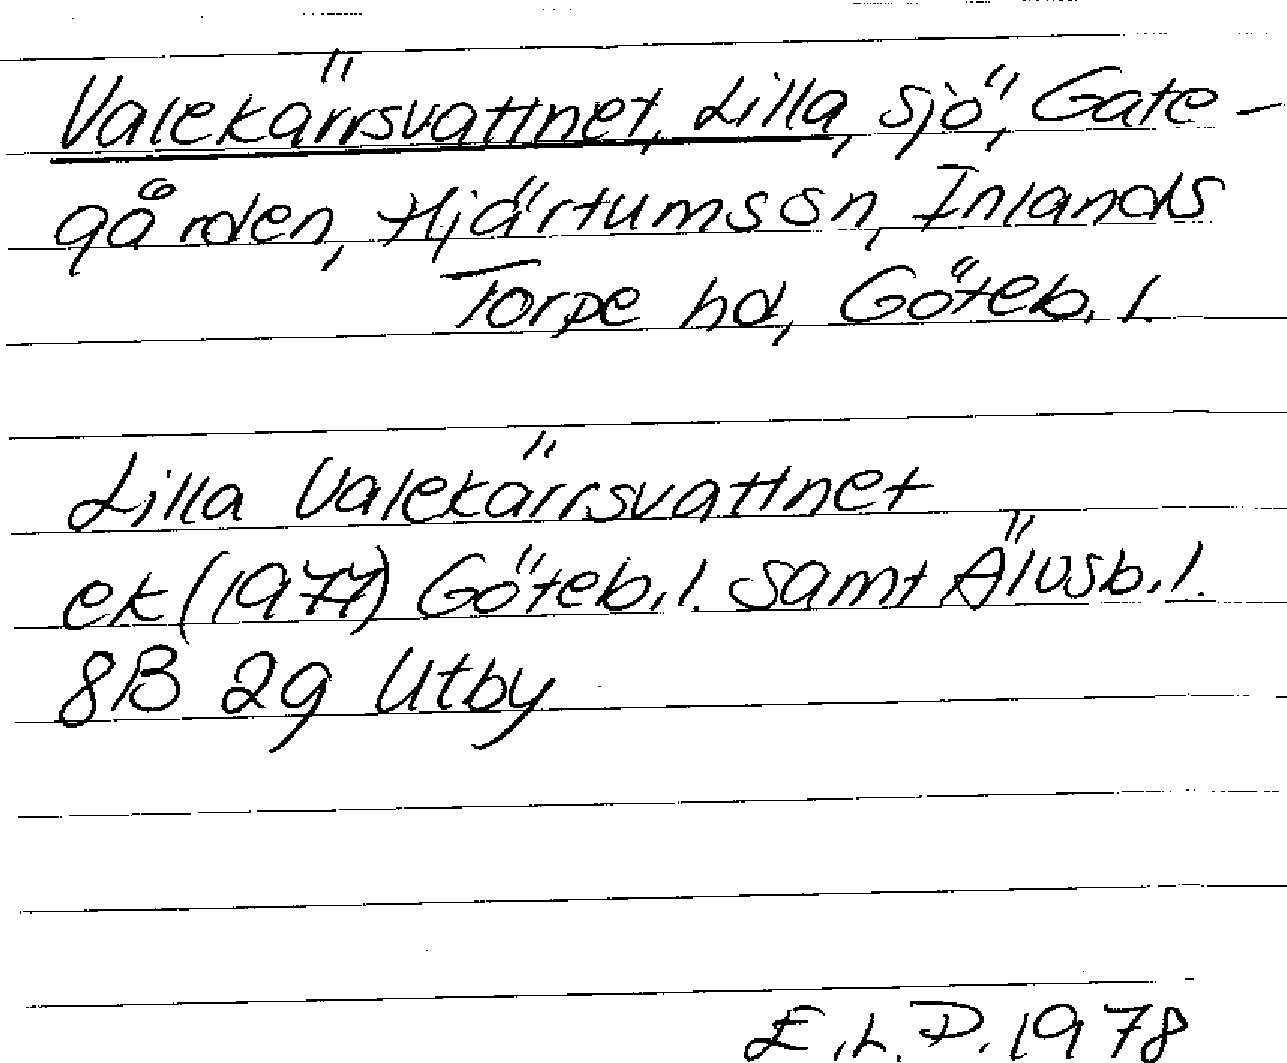 Valekärrsvattnet, Lilla, sjö, Gate-
gården, Hjärtums sn, Inlands
Torpe hd, Göteb. l.
Lilla Valekärrsvattnet
ek (1977) Göteb. l. samt Älvsb. l.
8B 2g Utby
E.L.P. 1978